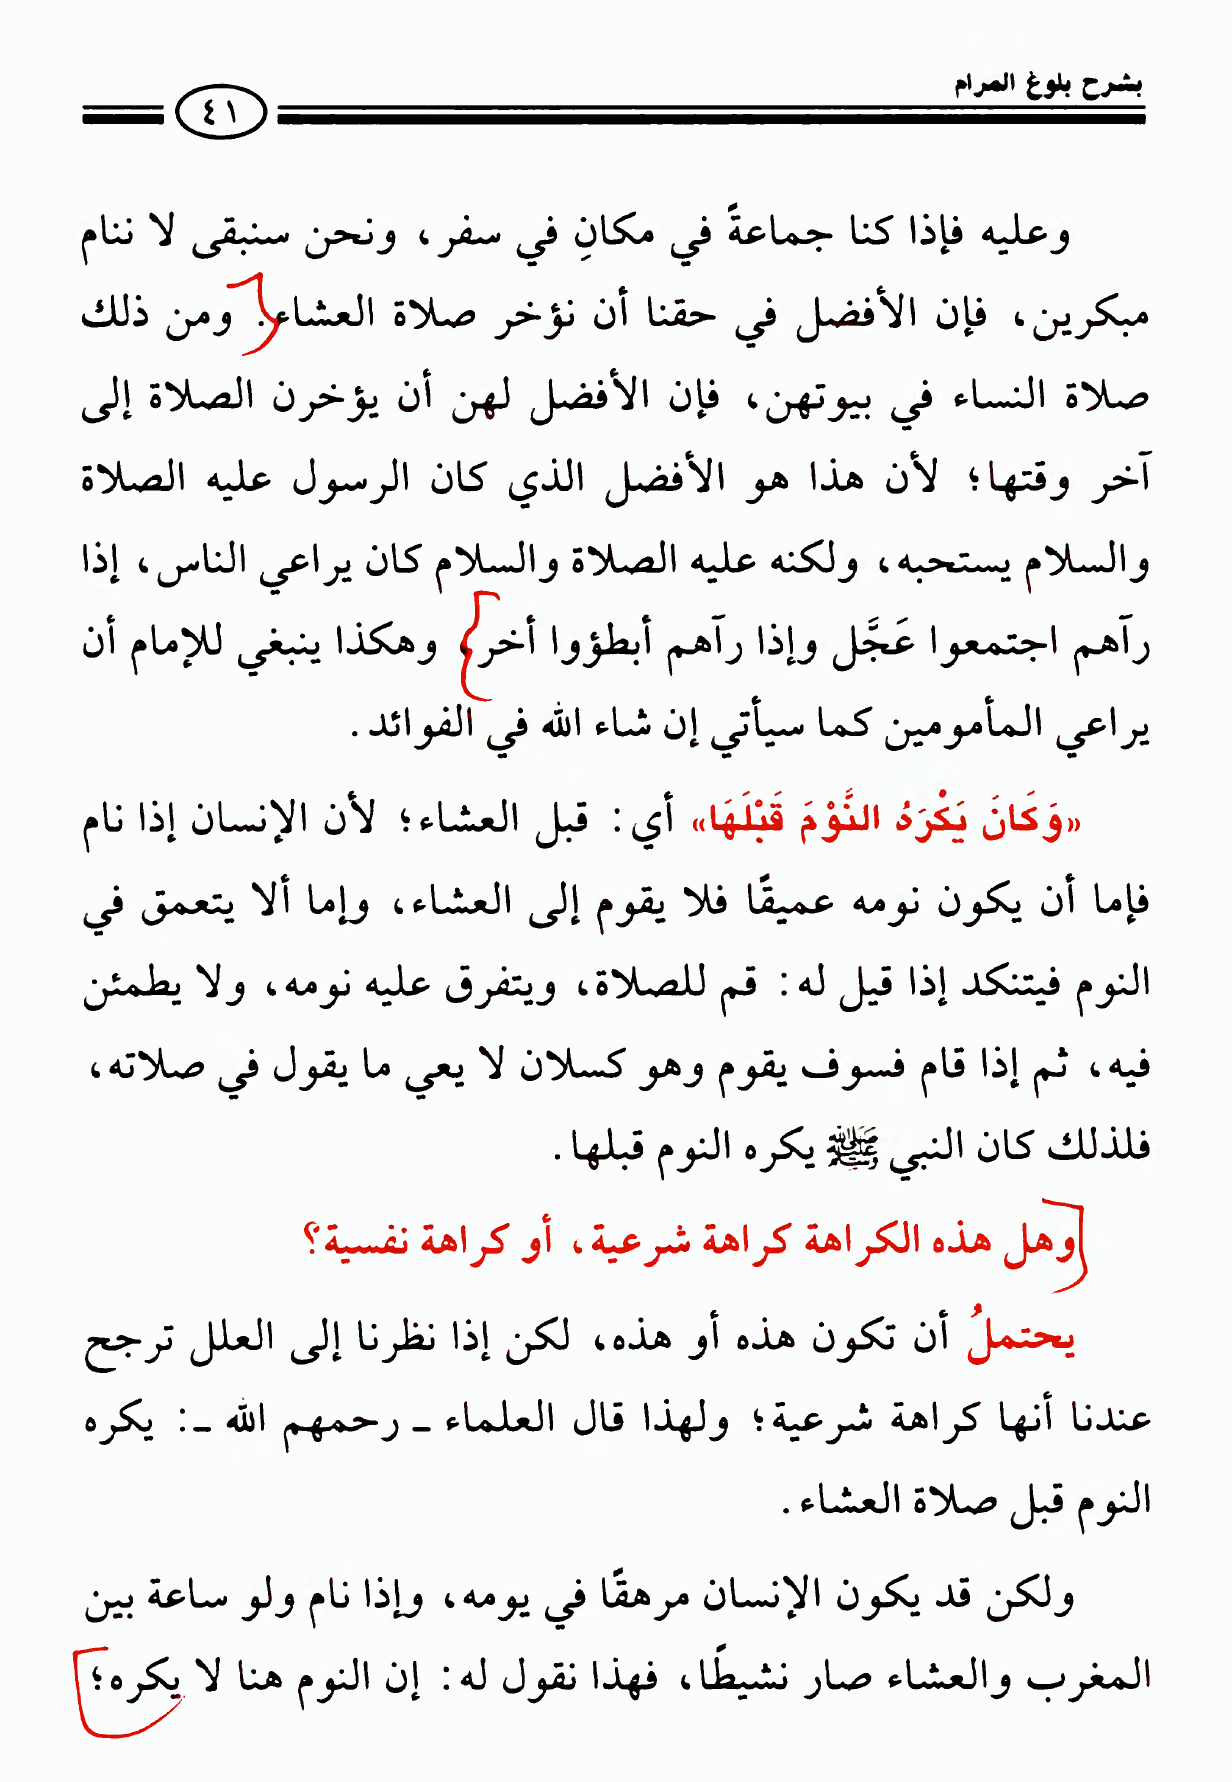 بشرح بلوغ المرام
٤١
وعليه فإذا كنا جماعةً في مكانٍ في سفر، ونحن سنبقى لا ننام
مبكرين، فإن الأفضل في حقنا أن نؤخر صلاة العشاء. ومن ذلك
صلاة النساء في بيوتهن، فإن الأفضل لهن أن يؤخرن الصلاة إلى
آخر وقتها؛ لأن هذا هو الأفضل الذي كان الرسول عليه الصلاة
والسلام يستحبه، ولكنه عليه الصلاة والسلام كان يراعي الناس، إذا
رآهم اجتمعوا عَجَّل وإذا رآهم أبطؤوا أخر، وهكذا ينبغي للإمام أن
يراعي المأمومين كما سيأتي إن شاء الله في الفوائد.
«وَكَانَ يَكْرَهُ النَّوْمَ قَبْلَهَا» أي: قبل العشاء؛ لأن الإنسان إذا نام
فإما أن يكون نومه عميقًا فلا يقوم إلى العشاء، وإما ألا يتعمق في
النوم فيتنكد إذا قيل له: قم للصلاة، ويتفرق عليه نومه، ولا يطمئن
فيه، ثم إذا قام فسوف يقوم وهو كسلان لا يعي ما يقول في صلاته،
فلذلك كان النبي ﷺ يكره النوم قبلها.
وهل هذه الكراهة كراهة شرعية، أو كراهة نفسية؟
يحتملُ أن تكون هذه أو هذه، لكن إذا نظرنا إلى العلل ترجح
عندنا أنها كراهة شرعية؛ ولهذا قال العلماء ـ رحمهم الله ـ: يكره
النوم قبل صلاة العشاء.
ولكن قد يكون الإنسان مرهقًا في يومه، وإذا نام ولو ساعة بين
المغرب والعشاء صار نشيطًا، فهذا نقول له: إن النوم هنا لا يكره؛